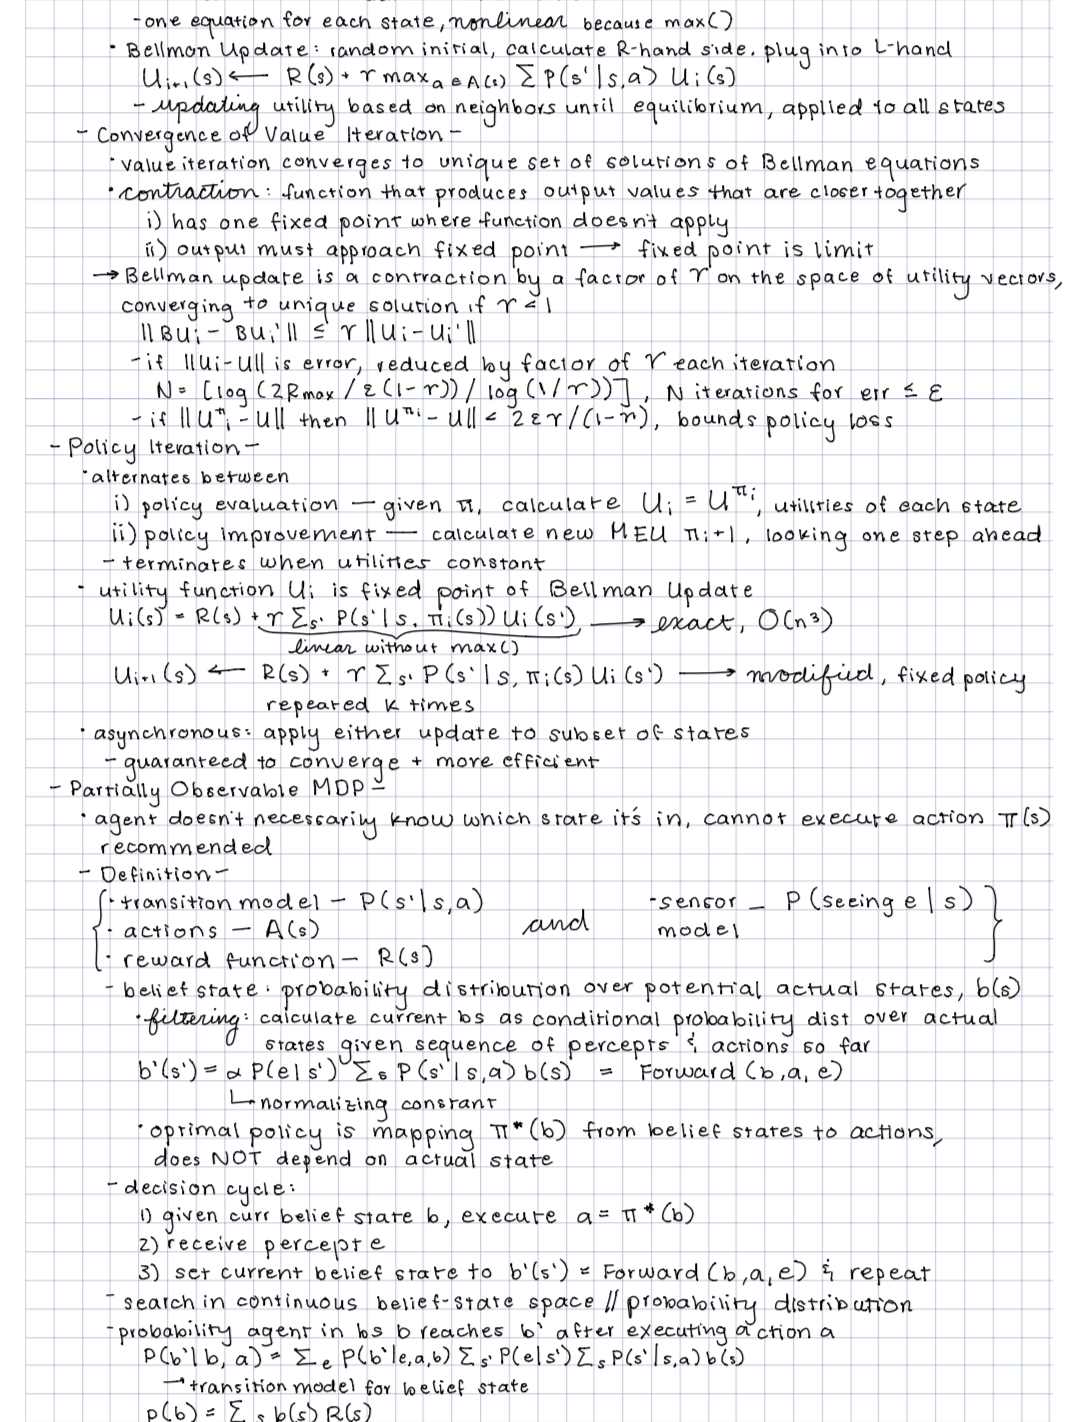 - one equation for each state, nonlinear because max()
· Bellman Update: random initial, calculate R-hand side. plug into L-hand
Ui+1(s) ← R(s) + r max a∈A(s) Σ P(s'|s,a) Ui(s)
- updating utility based on neighbors until equilibrium, applied to all states
- Convergence of Value Iteration -
· value iteration converges to unique set of solutions of Bellman equations
· contraction: function that produces output values that are closer together
i) has one fixed point where function doesn't apply
ii) output must approach fixed point → fixed point is limit
→ Bellman update is a contraction by a factor of r on the space of utility vectors,
converging to unique solution if r < 1
||BUi - BUi'|| ≤ r ||Ui - Ui'||
- if ||Ui - U|| is error, reduced by factor of r each iteration
N = ⌈log(2Rmax / ε(1-r)) / log(1/r))⌉, N iterations for err ≤ ε
- if ||Uπi - U|| then ||Uπi - U|| < 2εr/(1-r), bounds policy loss
- Policy Iteration -
· alternates between
i) policy evaluation — given π, calculate Ui = Uπi, utilities of each state
ii) policy improvement — calculate new MEU πi+1, looking one step ahead
- terminates when utilities constant
· utility function Ui is fixed point of Bellman Update
Ui(s) = R(s) + r Σs' P(s'|s, πi(s)) Ui(s') → exact, O(n³)
linear without max()
Ui+1(s) ← R(s) + r Σs' P(s'|s, πi(s) Ui(s') → modified, fixed policy
repeated k times
· asynchronous: apply either update to subset of states
- guaranteed to converge + more efficient
- Partially Observable MDP -
· agent doesn't necessarily know which state it's in, cannot execute action π(s)
recommended
- Definition -
{ · transition model - P(s'|s,a) and - sensor model - P(seeing e|s) }
· actions - A(s)
· reward function - R(s)
- belief state: probability distribution over potential actual states, b(s)
· filtering: calculate current bs as conditional probability dist over actual
states given sequence of percepts & actions so far
b'(s') = α P(e|s') Σs P(s'|s,a) b(s) = Forward(b,a,e)
↳ normalizing constant
· optimal policy is mapping π*(b) from belief states to actions,
does NOT depend on actual state
- decision cycle:
1) given curr belief state b, execute a = π*(b)
2) receive percept e
3) set current belief state to b'(s') = Forward(b,a,e) & repeat
- search in continuous belief-state space // probability distribution
- probability agent in bs b reaches b' after executing action a
P(b'|b, a) = Σe P(b'|e,a,b) Σs' P(e|s') Σs P(s'|s,a) b(s)
→ transition model for belief state
p(b) = Σs b(s) R(s)